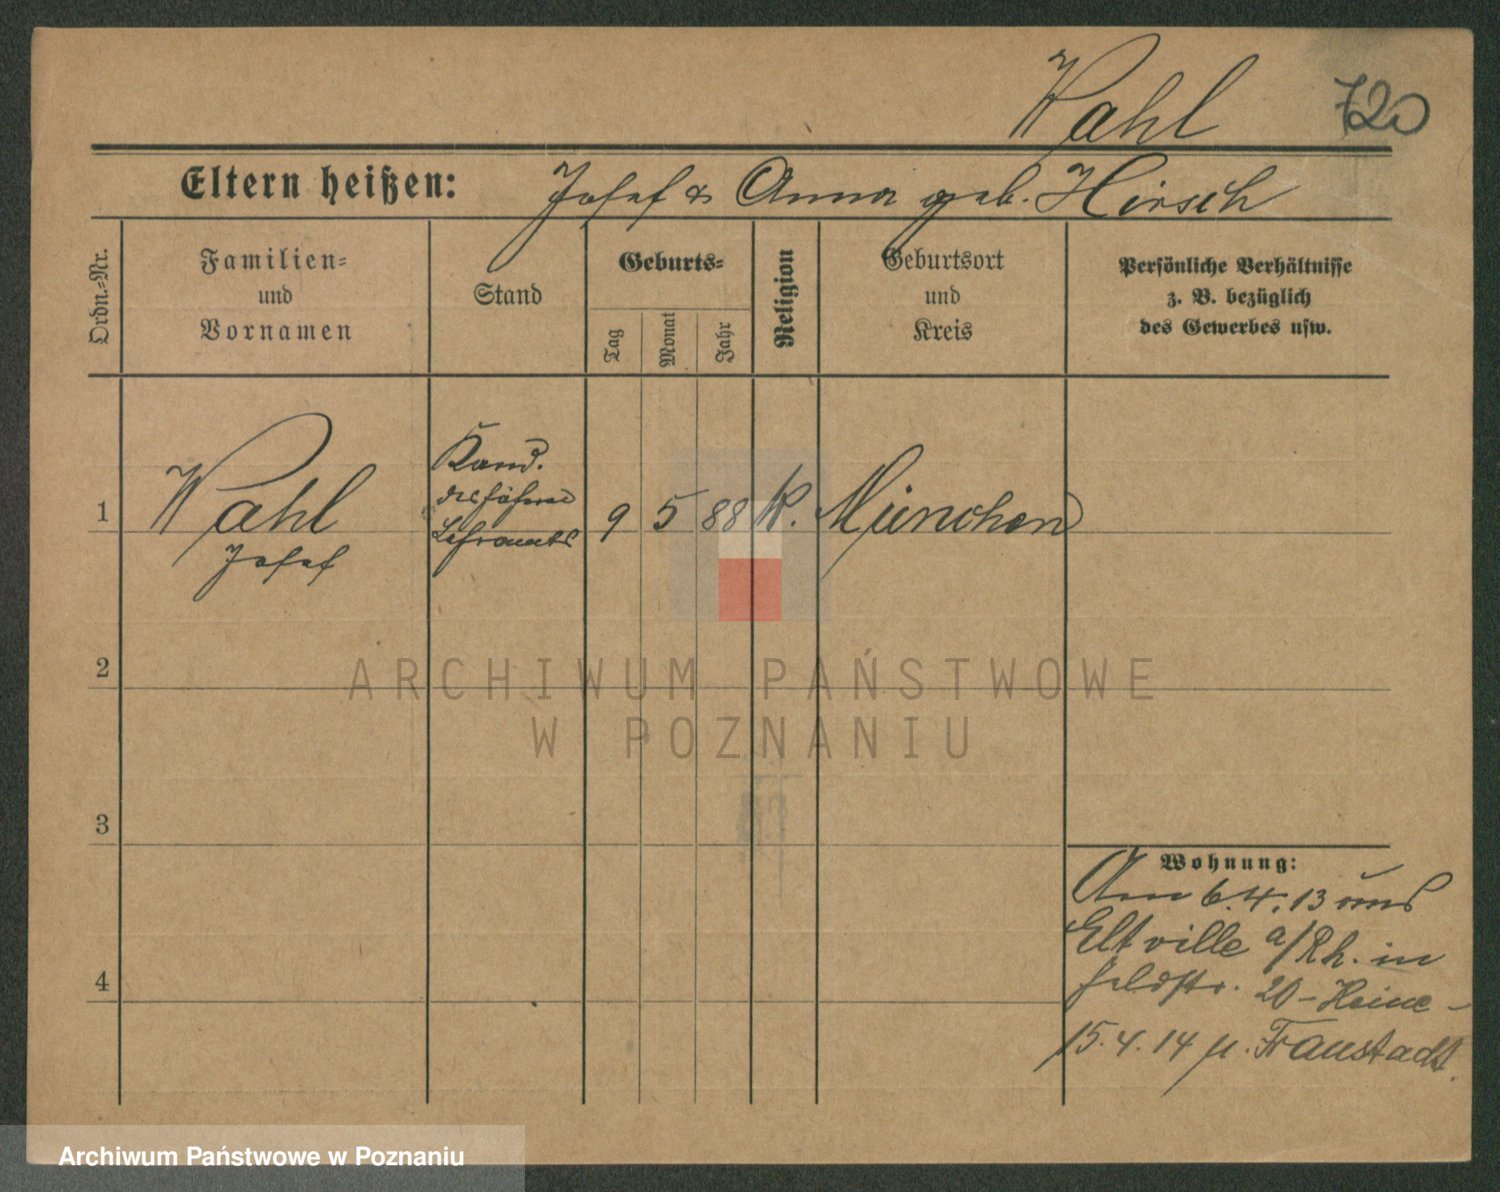 Wahl 720
Eltern heißen: Josef & Anna geb. Hirsch
Ordn.-Nr.
Familien-
und
Vornamen
Stand
Geburts-
Tag
Monat
Jahr
Religion
Geburtsort
und
Kreis
Persönliche Verhältnisse
z. B. bezüglich
des Gewerbes usw.
1
Wahl
Josef
Kand.
des höheren
Lehramts
9 5 88 K. München
2
3
4
Wohnung:
Am 6.4.13 aus
Eltville a/Rh. in
Feldstr. 20 - Heine -
15.4.14 n. Fraustadt.
ARCHIWUM PAŃSTWOWE
W POZNANIU
Archiwum Państwowe w Poznaniu